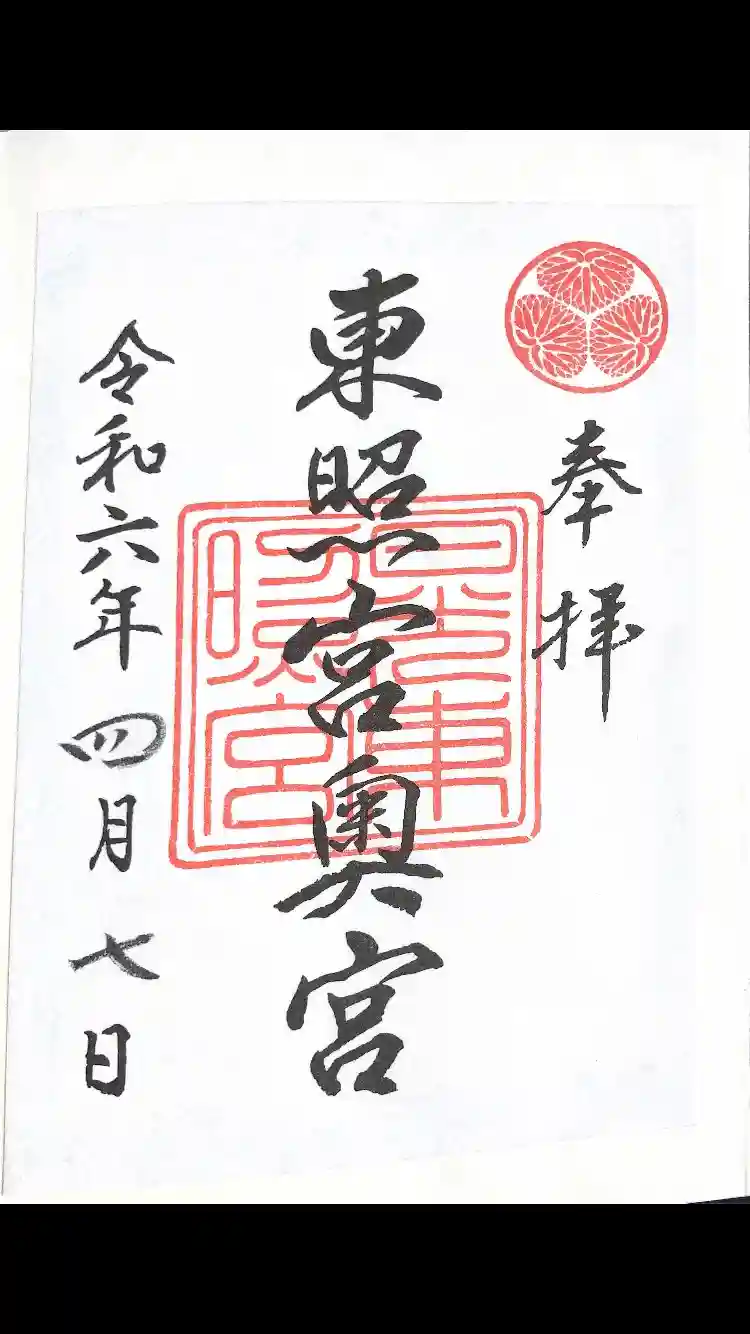 奉拝
東照宮奥宮
日光東
照宮
令和六年四月七日